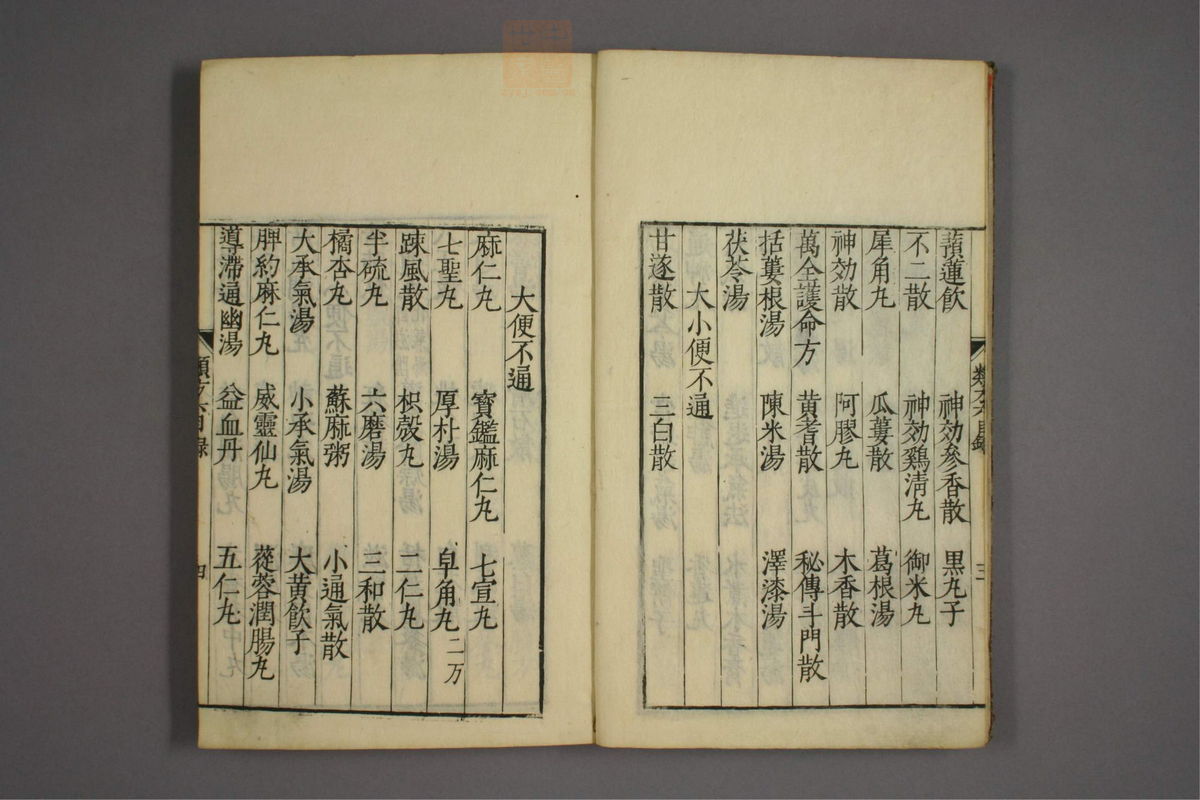 薷蓮飲　神効參香散　黒丸子
不二散　神効鷄清丸　御米丸
犀角丸　瓜蔞散　葛根湯
神効散　阿膠丸　木香散
萬全護命方　黄耆散　秘傳斗門散
括蔞根湯　陳米湯　澤漆湯
茯苓湯
大小便不通
甘遂散　三白散
類方六目録
三
大便不通
麻仁丸　寶鑑麻仁丸　七宣丸
七聖丸　厚朴湯　皁角丸二方
踈風散　枳殼丸　二仁丸
半硫丸　六磨湯　三和散
橘杏丸　蘇麻粥　小通氣散
大承氣湯　小承氣湯　大黄飲子
脾約麻仁丸　威靈仙丸　蓯蓉潤腸丸
導滯通幽湯　益血丹　五仁丸
類方六目録
四